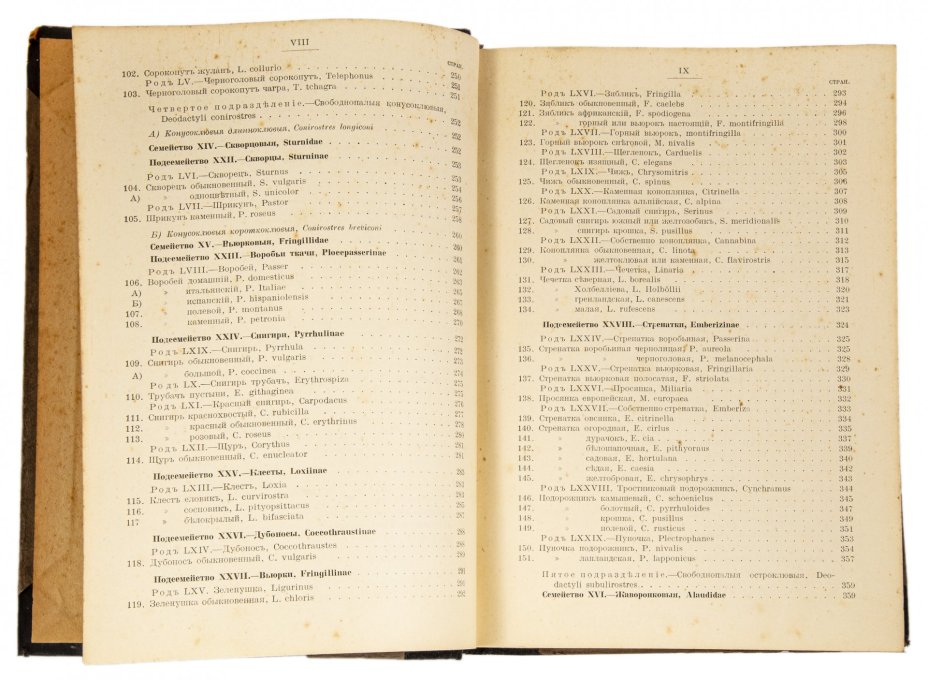 VIII
СТРАН.
102. Сорокопутъ жуланъ, L. collurio 250
Родъ LV.—Черноголовый сорокопутъ, Telephonus 251
103. Черноголовый сорокопутъ чагра, T. tchagra 251
Четвертое подраздѣленіе.—Свободнопалыя конусоклювыя,
Deodactyli conirostres 252
А) Конусоклювыя длинноклювыя, Conirostres longiconi 252
Семейство XIV.—Скворцовыя, Sturnidae 252
Подсемейство XXII.—Скворцы, Sturninae 253
Родъ LVI.—Скворецъ, Sturnus 253
104. Скворецъ обыкновенный, S. vulgaris 254
А) » одноцвѣтный, S. unicolor 256
Родъ LVII.—Шрикунъ, Pastor 257
105. Шрикунъ каменный, P. roseus 258
Б) Конусоклювыя короткоклювыя, Conirostres breviconi 260
Семейство XV.—Вьюрковыя, Fringillidae 260
Подсемейство XXIII.—Воробьи ткачи, Ploceapasserinae 261
Родъ LVIII.—Воробей, Passer 262
106. Воробей домашній, P. domesticus 263
А) » итальянскій, P. Italiae 265
Б) » испанскій, P. hispaniolensis 267
107. » полевой, P. montanus 268
108. » каменный, P. petronia 270
Подсемейство XXIV.—Снигири, Pyrrhulinae 272
Родъ LIX.—Снигирь, Pyrrhula 272
109. Снигирь обыкновенный, P. vulgaris 273
А) » большой, P. coccinea 274
Родъ LX.—Снигирь трубачъ, Erythrospiza 275
110. Трубачъ пустыни, E. githaginea 275
Родъ LXI.—Красный снигирь, Carpodacus 276
111. Снигирь краснохвостый, C. rubicilla 277
112. » красный обыкновенный, C. erythrinus 278
113. » розовый, C. roseus 280
Родъ LXII.—Щуръ, Corythus 281
114. Щуръ обыкновенный, C. enucleator 281
Подсемейство XXV.—Клесты, Loxiinae 283
Родъ LXIII.—Клестъ, Loxia 283
115. Клестъ еловикъ, L. curvirostra
116. » сосновикъ, L. pityopsittacus
117 » бѣлокрылый, L. bifasciata
Подсемейство XXVI.—Дубоносы, Coccothraustinae
Родъ LXIV.—Дубоносъ, Coccothraustes
118. Дубоносъ обыкновенный, C. vulgaris
Подсемейство XXVII.—Вьюрки, Fringillinae
Родъ LXV. Зеленушка, Ligurinus
119. Зеленушка обыкновенная, L. chloris
IX
СТРАН.
Родъ LXVI.—Зябликъ, Fringilla 293
120. Зябликъ обыкновенный, F. caelebs 294
121. Зябликъ африканскій, F. spodiogena 296
122. » горный или вьюрокъ настоящій, F. montifringilla 298
Родъ LXVII.—Горный вьюрокъ, montifringilla 300
123. Горный вьюрокъ снѣговой, M. nivalis 301
Родъ LXVIII.—Щегленокъ, Carduelis 302
124. Щегленокъ изящный, C. elegans 303
Родъ LXIX.—Чижъ, Chrysomitris 305
125. Чижъ обыкновенный, C. spinus 306
Родъ LXX.—Каменная коноплянка, Citrinella 307
126. Каменная коноплянка альпійская, C. alpina 308
Родъ LXXI.—Садовый снигирь, Serinus 309
127. Садовый снигирь южный или желтозобикъ, S. meridionalis 310
128. » снигирь крошка, S. pusillus 311
Родъ LXXII.—Собственно коноплянка, Cannabina 312
129. Коноплянка обыкновенная, C. linota 313
130. » желтоклювая или каменная, C. flavirostris 315
Родъ LXXIII.—Чечетка, Linaria 317
131. Чечетка сѣверная, L. borealis 318
132. » Холбеллiева, L. Holböllii 320
133. » гренландская, L. canescens 321
134. » малая, L. rufescens 323
Подсемейство XXVIII.—Стренатки, Emberizinae 324
Родъ LXXIV.—Стренатка воробьиная, Passerina 325
135. Стренатка воробьиная черполицая, P. aureola 325
136. » » черноголовая, P. melanocephala 328
Родъ LXXV.—Стренатка вьюрковая, Fringillaria 329
137. Стренатка вьюрковая полосатая, F. striolata 330
Родъ LXXVI.—Просянка, Miliaria 331
138. Просянка европейская, M. europaea 332
Родъ LXXVII.—Собственно стренатка, Emberiza 333
139. Стренатка овсянка, E. citrinella 334
140. Стренатка огородная, E. cirlus 335
141. » дурачокъ, E. cia 337
142. » бѣлошапочная, E. pithyornus 339
143. » садовая, E. hortulana 340
144. » сѣдая, E. caesia 342
145. » желтобровая, E. chrysophrys 343
Родъ LXXVIII. Тростниковый подорожникъ, Cynchramus 344
146. Подорожникъ камышевый, C. schoeniclus 345
147. » болотный, C. pyrrhuloides 347
148. » крошка, C. pusillus 349
149. » полевой, C. rusticus 351
Родъ LXXIX.—Пуночка, Plectrophanes 353
150. Пуночка подорожникъ, P. nivalis 354
151. » лапландская, P. lapponicus 357
Пятое подраздѣленіе.—Свободнопалыя остроклювыя, Deo-
dactyli subulirostres 359
Семейство XVI.—Жаворонковыя, Alaudidae 359